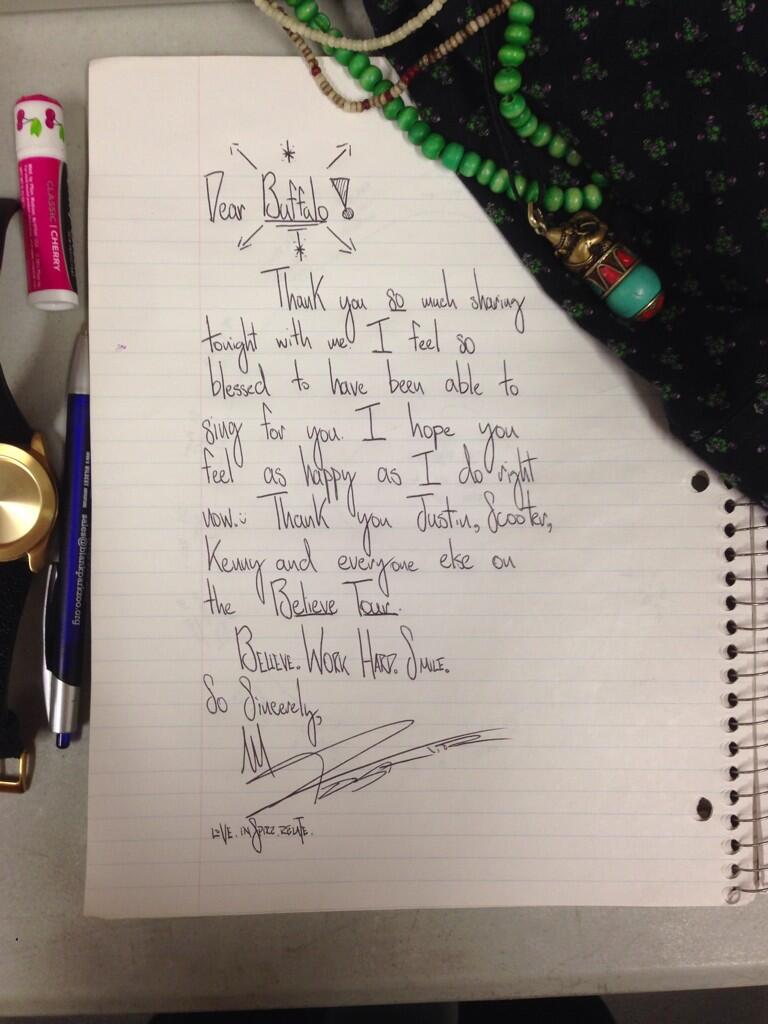 Dear Buffalo!
Thank you so much sharing
tonight with me! I feel so
blessed to have been able to
sing for you. I hope you
feel as happy as I do right
now.: Thank you Justin, Scooter,
Kenny and everyone else on
the Believe Tour.
BELIEVE. WORK HARD. SMILE.
So Sincerely,
LOVE. INSPIRE. RELATE.
CLASSIC | CHERRY
sales@blankparkzoo.org